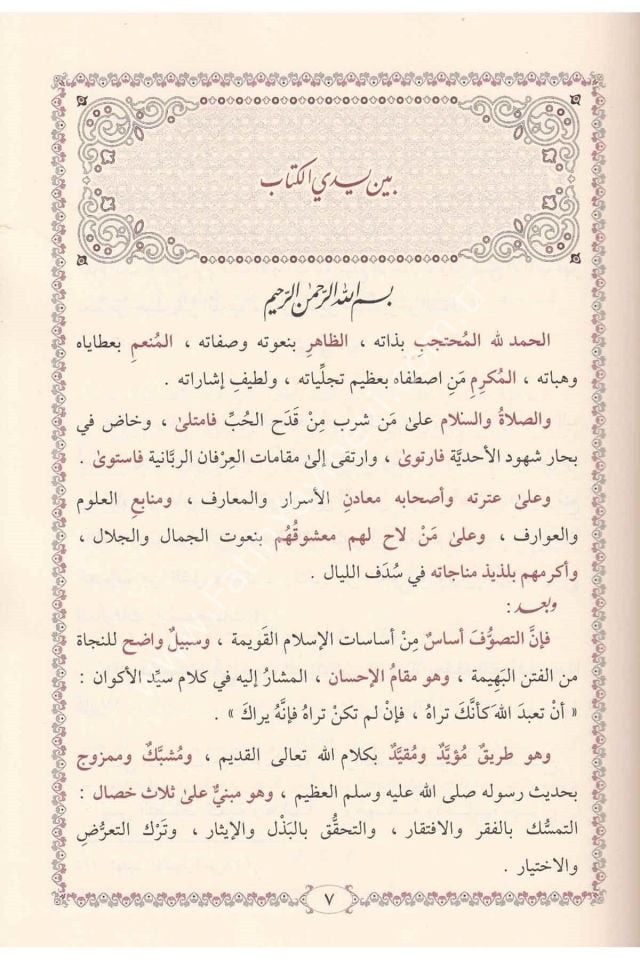 بين يدي الكتاب
بسم الله الرحمٰن الرحيم
الحمد لله المُحتجبِ بذاته ، الظاهرِ بنعوته وصفاته ، المُنعمِ بعطاياه
وهباته ، المُكرِمِ مَنِ اصطفاه بعظيم تجلِّياته ، ولطيفِ إشاراته .
والصلاةُ والسلام علىٰ مَن شرب مِنْ قَدَح الحُبِّ فامتلىٰ ، وخاض في
بحار شهود الأحديَّة فارتوىٰ ، وارتقى إلىٰ مقامات العِرْفان الربَّانية فاستوىٰ .
وعلىٰ عترته وأصحابه معادنِ الأسرار والمعارف ، ومنابعِ العلوم
والعوارف ، وعلىٰ مَنْ لاح لهم معشوقُهُم بنعوت الجمال والجلال ،
وأكرمهم بلذيذ مناجاته في سُدَف الليال .
وبعد :
فإنَّ التصوُّفَ أساسٌ مِنْ أساسات الإسلام القَويمة ، وسبيلٌ واضح للنجاة
من الفتن البَهِيمة ، وهو مقامُ الإحسان ، المشارُ إليه في كلام سيِّد الأكوان :
« أنْ تعبدَ اللهَ كأنَّكَ تراهُ ، فإنْ لم تكنْ تراهُ فإنَّهُ يراكَ » .
وهو طريقٌ مُؤيَّدٌ ومُقيَّدٌ بكلام الله تعالى القديم ، ومُشبَّكٌ وممزوج
بحديث رسوله صلى الله عليه وسلم العظيم ، وهو مبنيٌّ علىٰ ثلاث خصال :
التمسُّك بالفقر والافتقار ، والتحقُّق بالبَذْل والإيثار ، وتَرْك التعرُّضِ
والاختيار .
٧